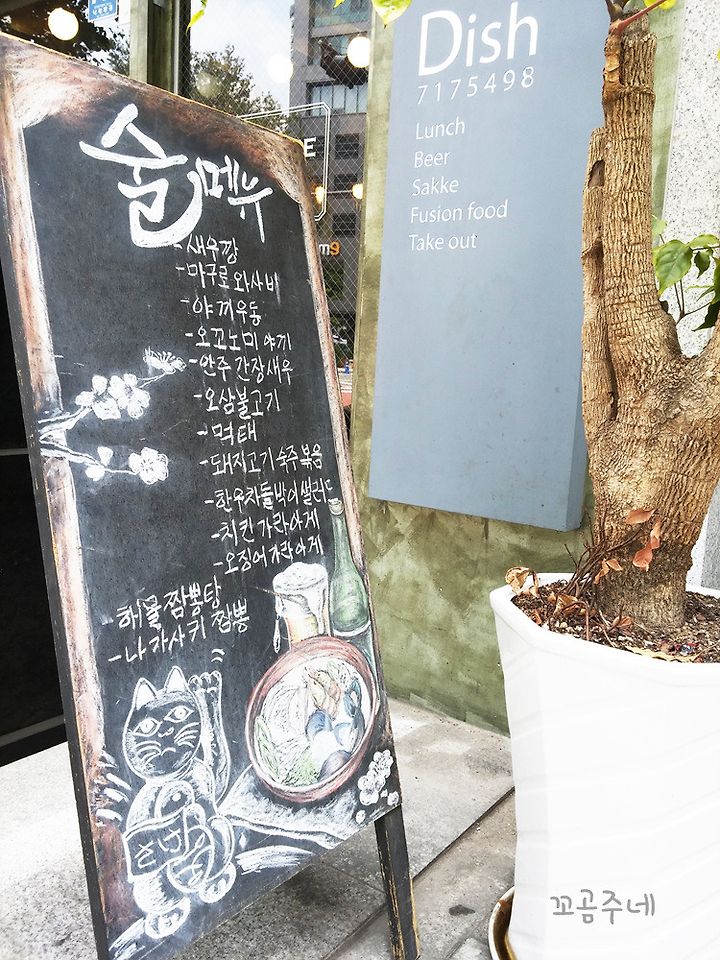 술메뉴
-새우깡
-마구로 와사비
-야끼우동
-오꼬노미 야끼
-안주 간장새우
-오삼불고기
-먹태
-돼지고기 숙주볶음
-한우차돌박이샐러드
-치킨 가라아게
-오징어 가라아게
-해물 짬뽕탕
-나가사키 짬뽕
Dish
7175498
Lunch
Beer
Sakke
Fusion food
Take out
꼬곰주네